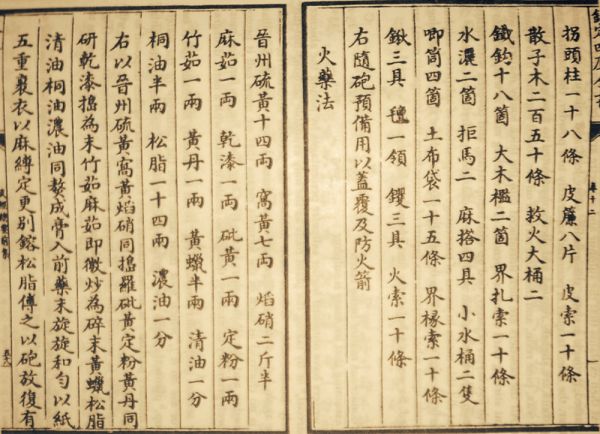 欽定四庫全書
卷十二
拐頭柱一十八條 皮簾八片 皮索一十條
散子木二百五十條 救火大桶二
鐵鈎十八箇 大木檻二箇 界扎索一十條
水濺二箇 拒馬二 麻搭四具 小水桶二隻
唧筒四箇 土布袋一十五條 界椽索一十條
鍬三具 氊一領 钁三具 火索一十條
右隨砲預備用以蓋覆及防火箭
火藥法
晉州硫黃十四兩 窩黃七兩 焰硝二斤半
麻茹一兩 乾漆一兩 砒黃一兩 定粉一兩
竹茹一兩 黃丹一兩 黃蠟半兩 清油一分
桐油半兩 松脂一十四兩 濃油一分
右以晉州硫黃窩黃焰硝同搗羅砒黃定粉黃丹同
研乾漆搗為末竹茹麻茹即微炒為碎末黃蠟松脂
清油桐油濃油同熬成膏入前藥末旋旋和勻以紙
五重裹衣以麻縛定更別鎔松脂傅之以砲放復有